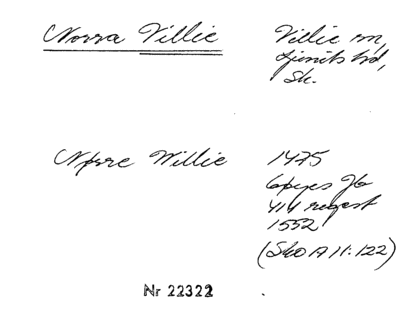 Norra Villie
Villie sn,
Ljunits hd,
Sk.
Nørre Willie
1475
6pyes Jb
414 regest
1552
(Sko A II:122)
Nr 22322